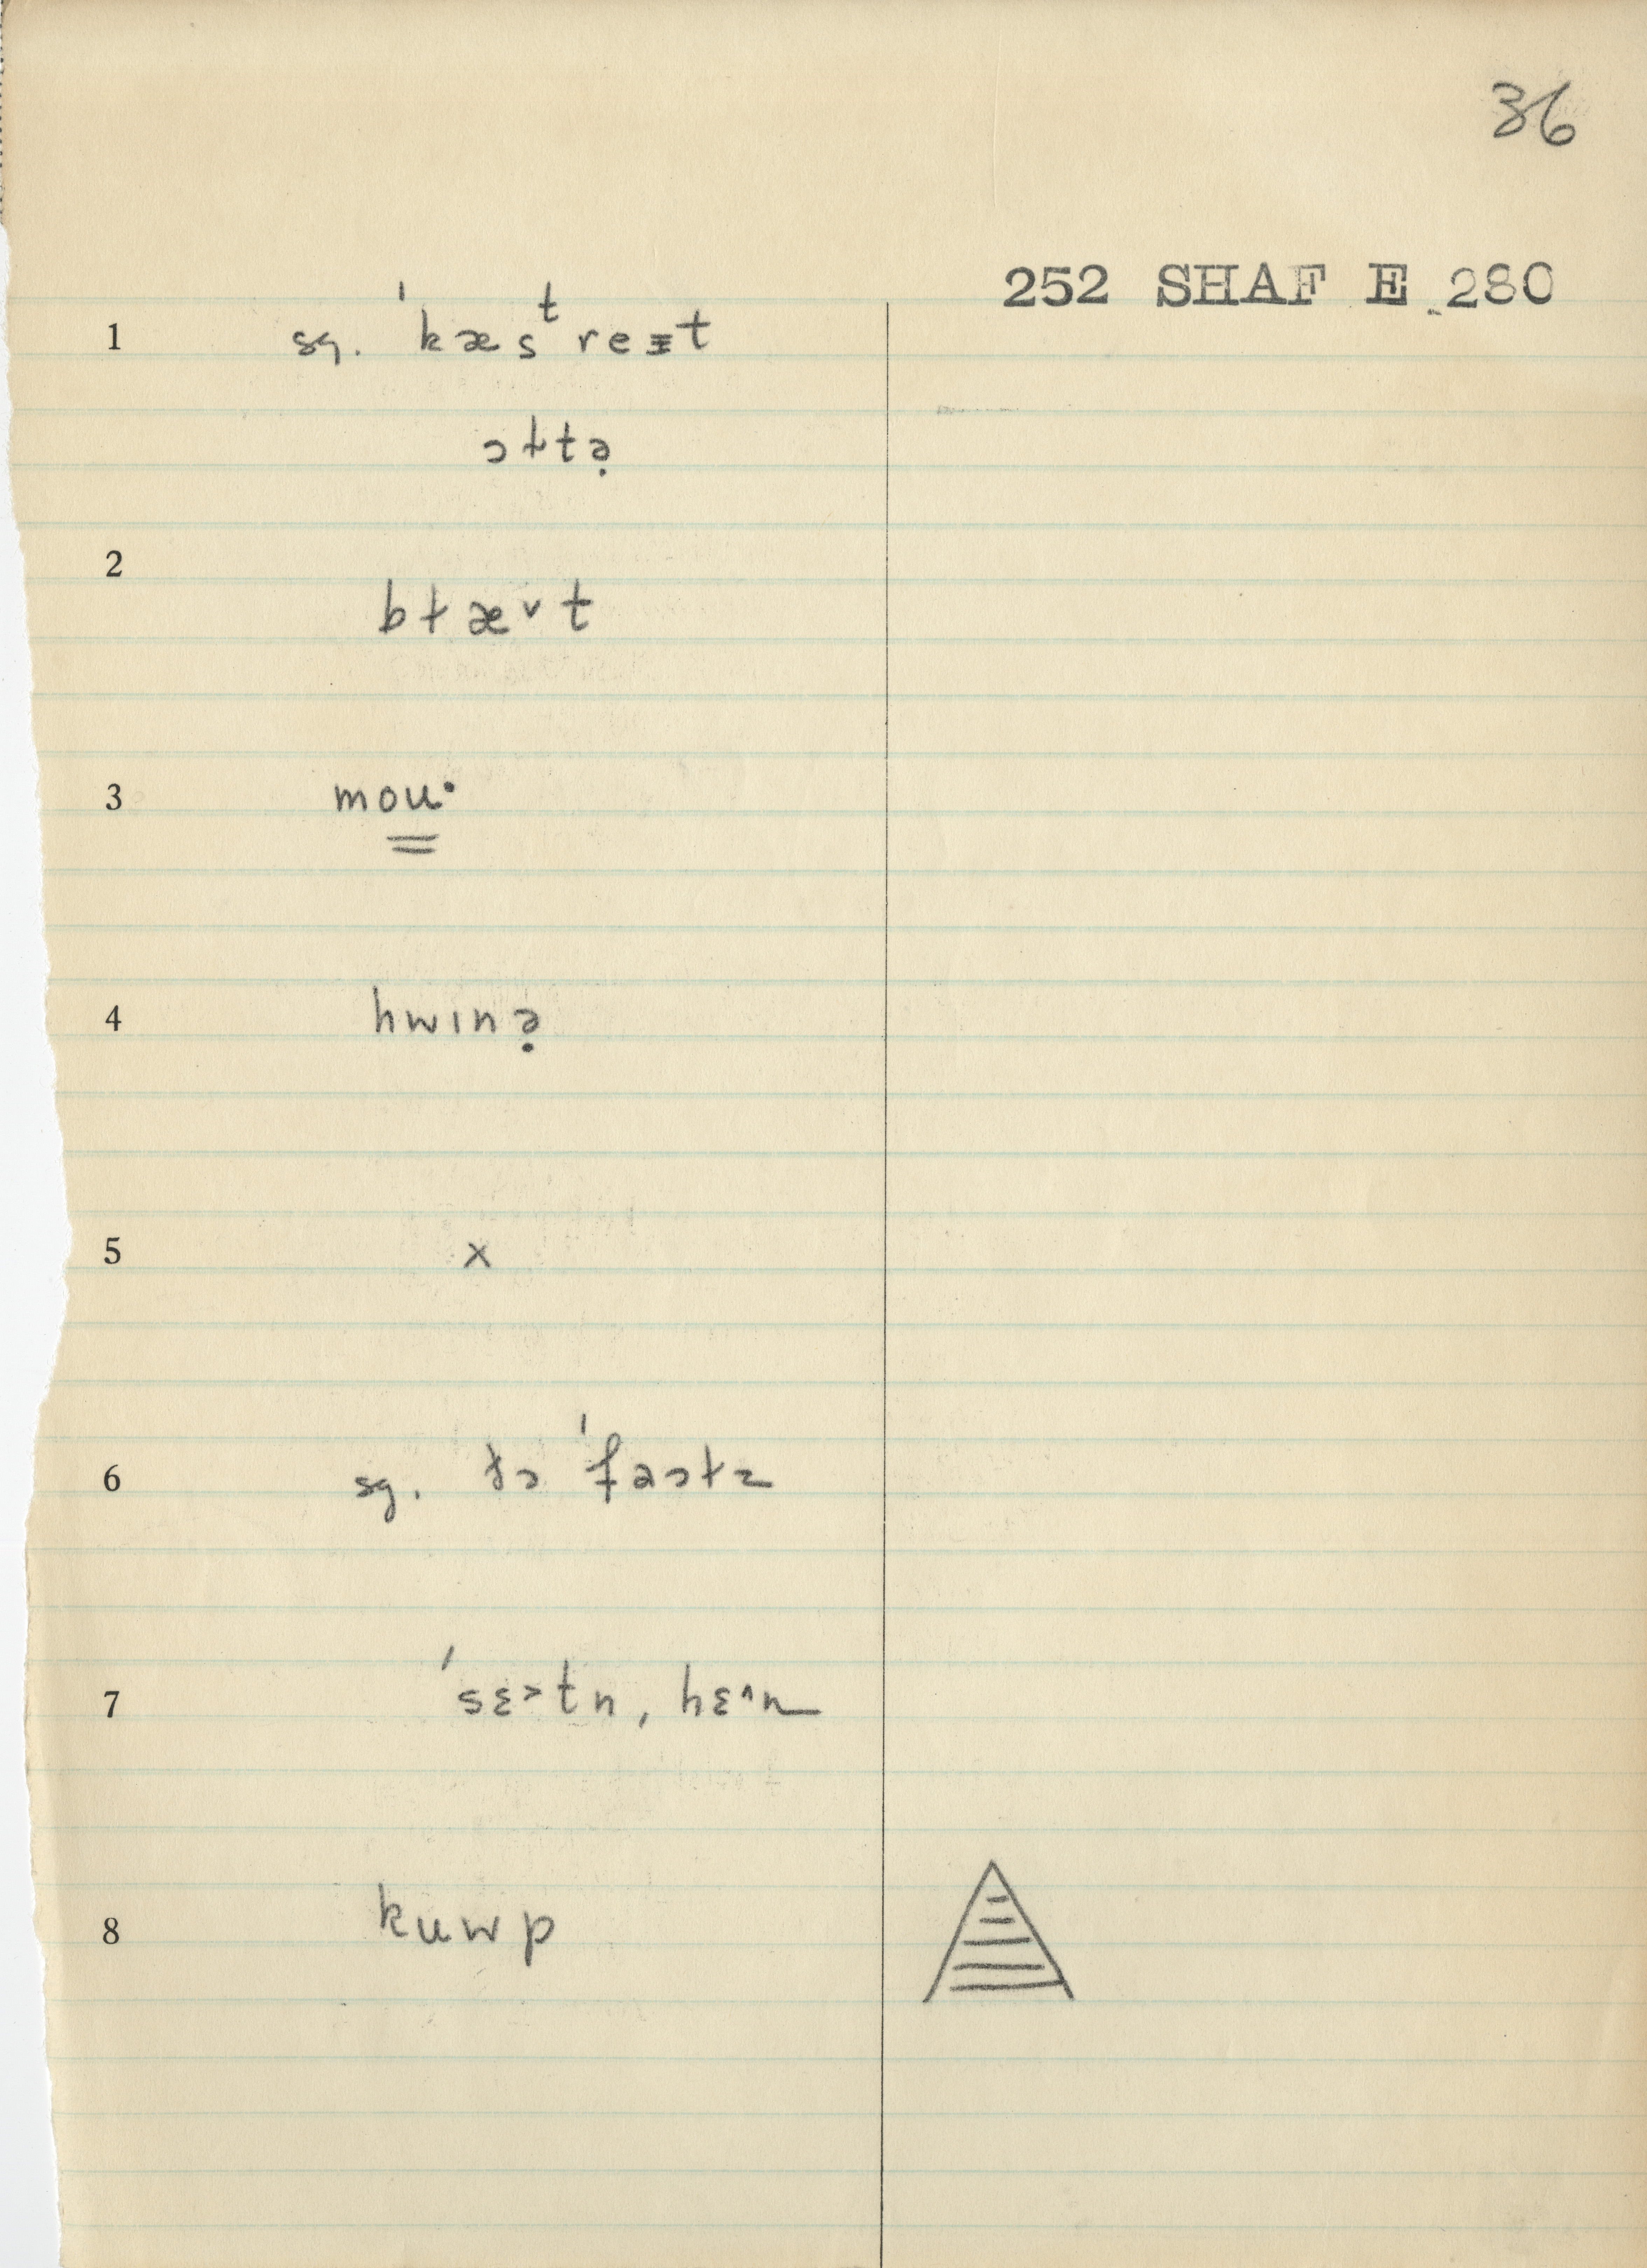 36
252 SHAF E 280
1 sg. ˈkæsᵗreɪt
ɔɫtə̣
2 bɫæ˅t
3 mou·
4 hwɪnə̣
5 x
6 sg. ðə ˈfaɔɫz
7 ˈsɛ˃tn, hɛ˄n
8 kuwp